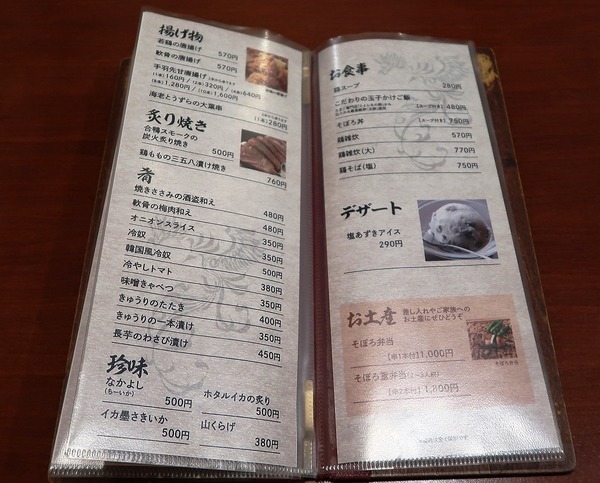 揚げ物
若鶏の唐揚げ 570円
軟骨の唐揚げ 570円
手羽先甘唐揚げ
(1本)160円/(2本)320円/(4本)640円
(8本)1,280円/(10本)1,600円
海老とうずらの大葉串
(1本)280円
炙り焼き
合鴨スモークの
炭火炙り焼き 500円
鶏ももの三五八漬け焼き 760円
肴
焼きささみの酒盗和え 480円
軟骨の梅肉和え 480円
オニオンスライス 350円
冷奴 350円
韓国風冷奴 500円
冷やしトマト 380円
味噌きゃべつ 350円
きゅうりのたたき 400円
きゅうりの一本漬け 350円
長芋のわさび漬け 450円
珍味
なかよし
(ちーいか) 500円
ホタルイカの炙り
500円
イカ墨さきいか
500円
山くらげ
380円
お食事
鶏スープ 280円
こだわりの玉子かけご飯
【スープ付き】480円
そぼろ丼 【スープ付き】750円
鶏雑炊 570円
鶏雑炊(大) 770円
鶏そば(塩) 750円
デザート
塩あずきアイス
290円
お土産
差し入れやご家族への
お土産にぜひどうぞ
そぼろ弁当
【串1本付】1,000円
そぼろ重弁当(2〜3人前)
【串2本付】1,800円
そぼろ弁当